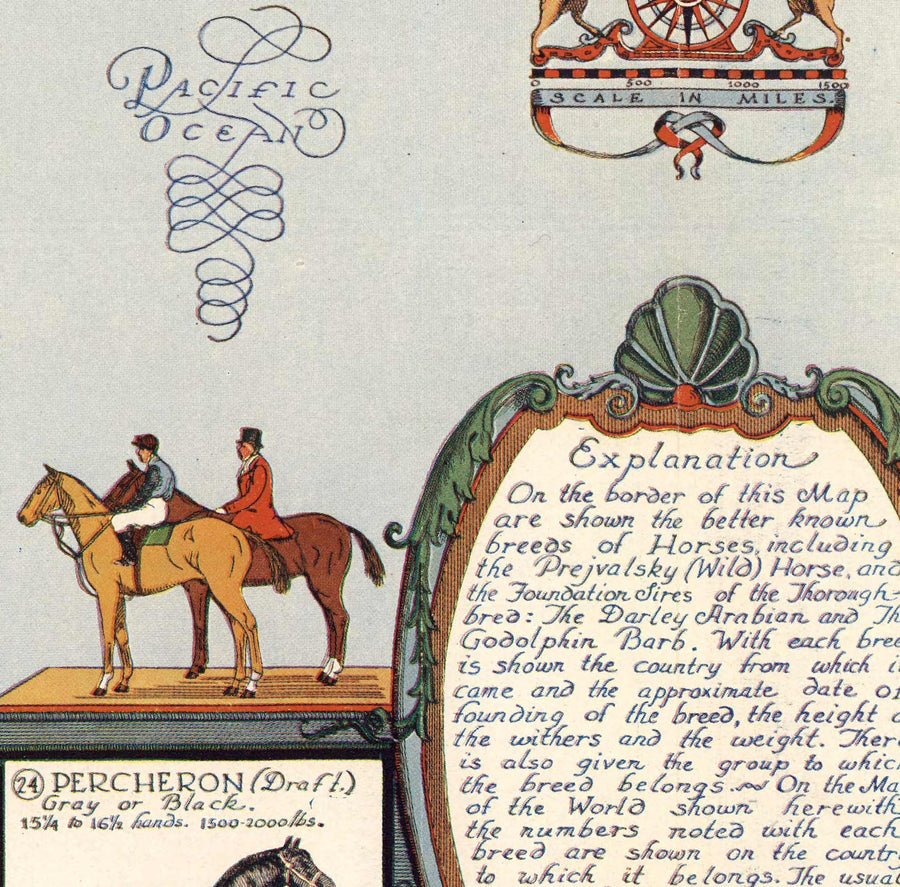 Pacific
Ocean
0 500 1000 1500
SCALE IN MILES.
Explanation
On the border of this Map
are shown the better known
breeds of Horses, including
the Prejvalsky (Wild) Horse, and
the Foundation Sires of the Thorough-
bred: The Darley Arabian and Th
Godolphin Barb. With each bree
is shown the country from which i
came and the approximate date of
founding of the breed, the height a
the withers and the weight. Ther
is also given the group to which
the breed belongs. ~ On the Ma
of the World shown herewith
the numbers noted with each
breed are shown on the countr
to which it belongs. The usual
24 PERCHERON (Draft.)
Gray or Black.
15¼ to 16½ hands. 1500-2000 lbs.